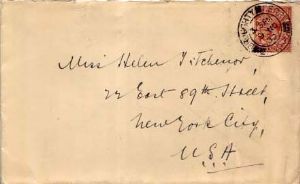 Miss Helen Titchenor,
22 East 89th Street,
New York City,
U.S.A